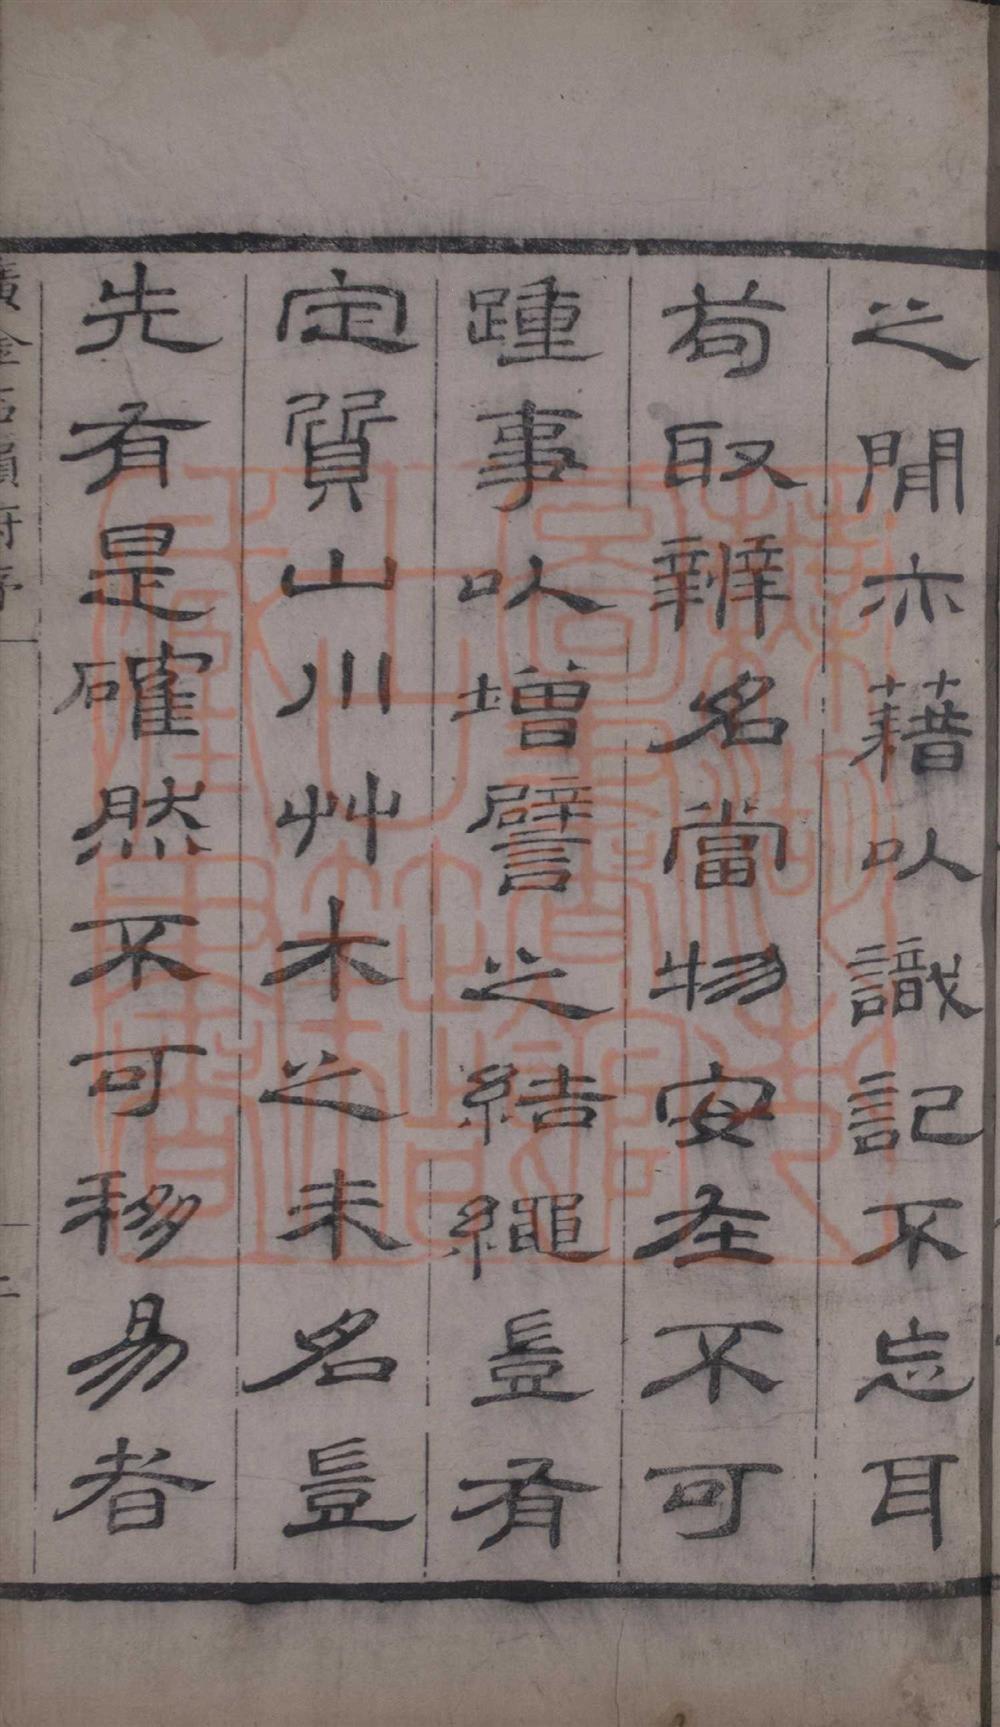 之間亦藉以識記不忘耳
苟取辨名當物安在不可
踵事以增譬之結繩豈有
定質山川艸木之未名豈
先有是確然不可移易者
廣金石韻府序